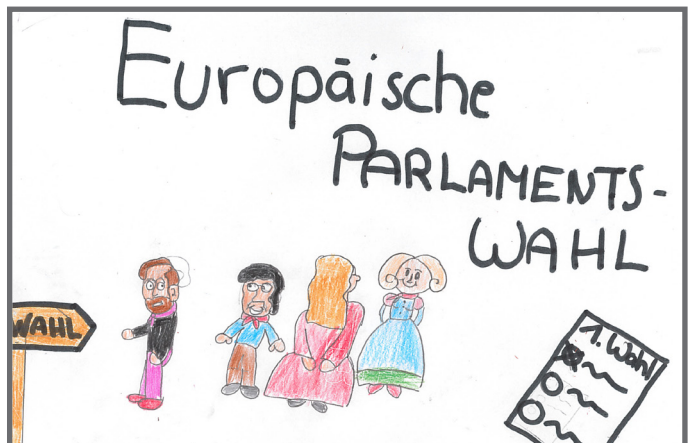 Europäische
PARLAMENTS-
WAHL
WAHL
1. Wahl